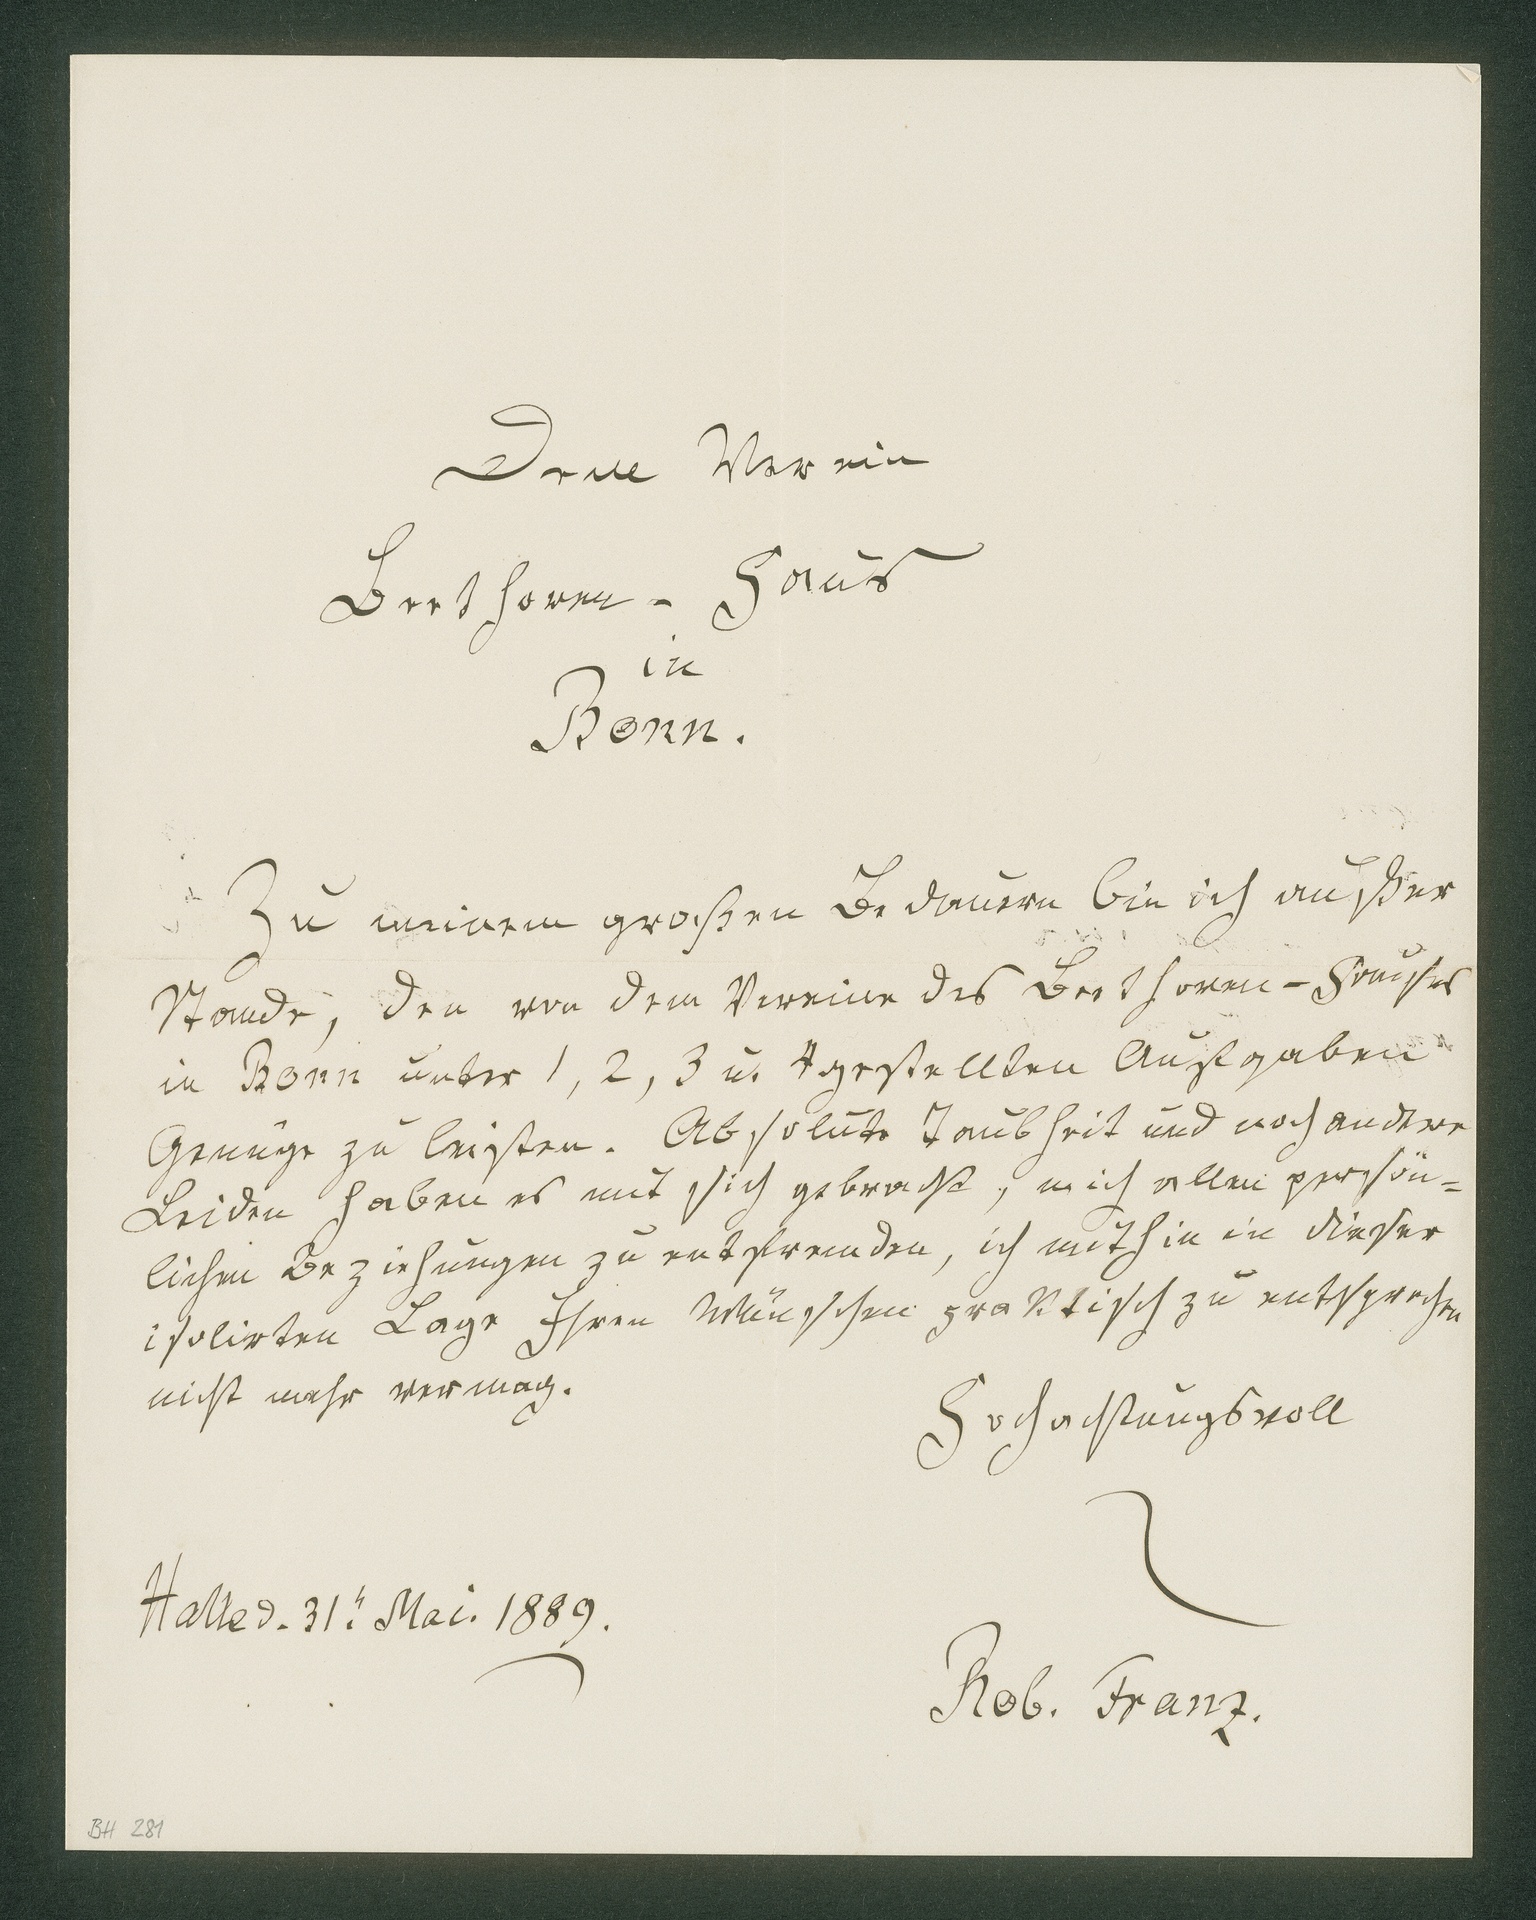 Dem Verein
Beethoven-Haus
in
Bonn.
Zu meinem großen Bedauern bin ich außer
Stande, den von dem Vereine des Beethoven-Hauses
in Bonn unter 1, 2, 3 u. 4 gestellten Aufgaben
Genüge zu leisten. Absolute Taubheit und noch andere
Leiden haben es mit sich gebracht, mich allen persön-
lichen Beziehungen zu entfremden, ich mithin in dieser
isolirten Lage Ihren Wünschen praktisch zu entsprechen
nicht mehr vermag.
Hochachtungsvoll
Halle d. 31t Mai. 1889.
Rob. Franz.
BH 281